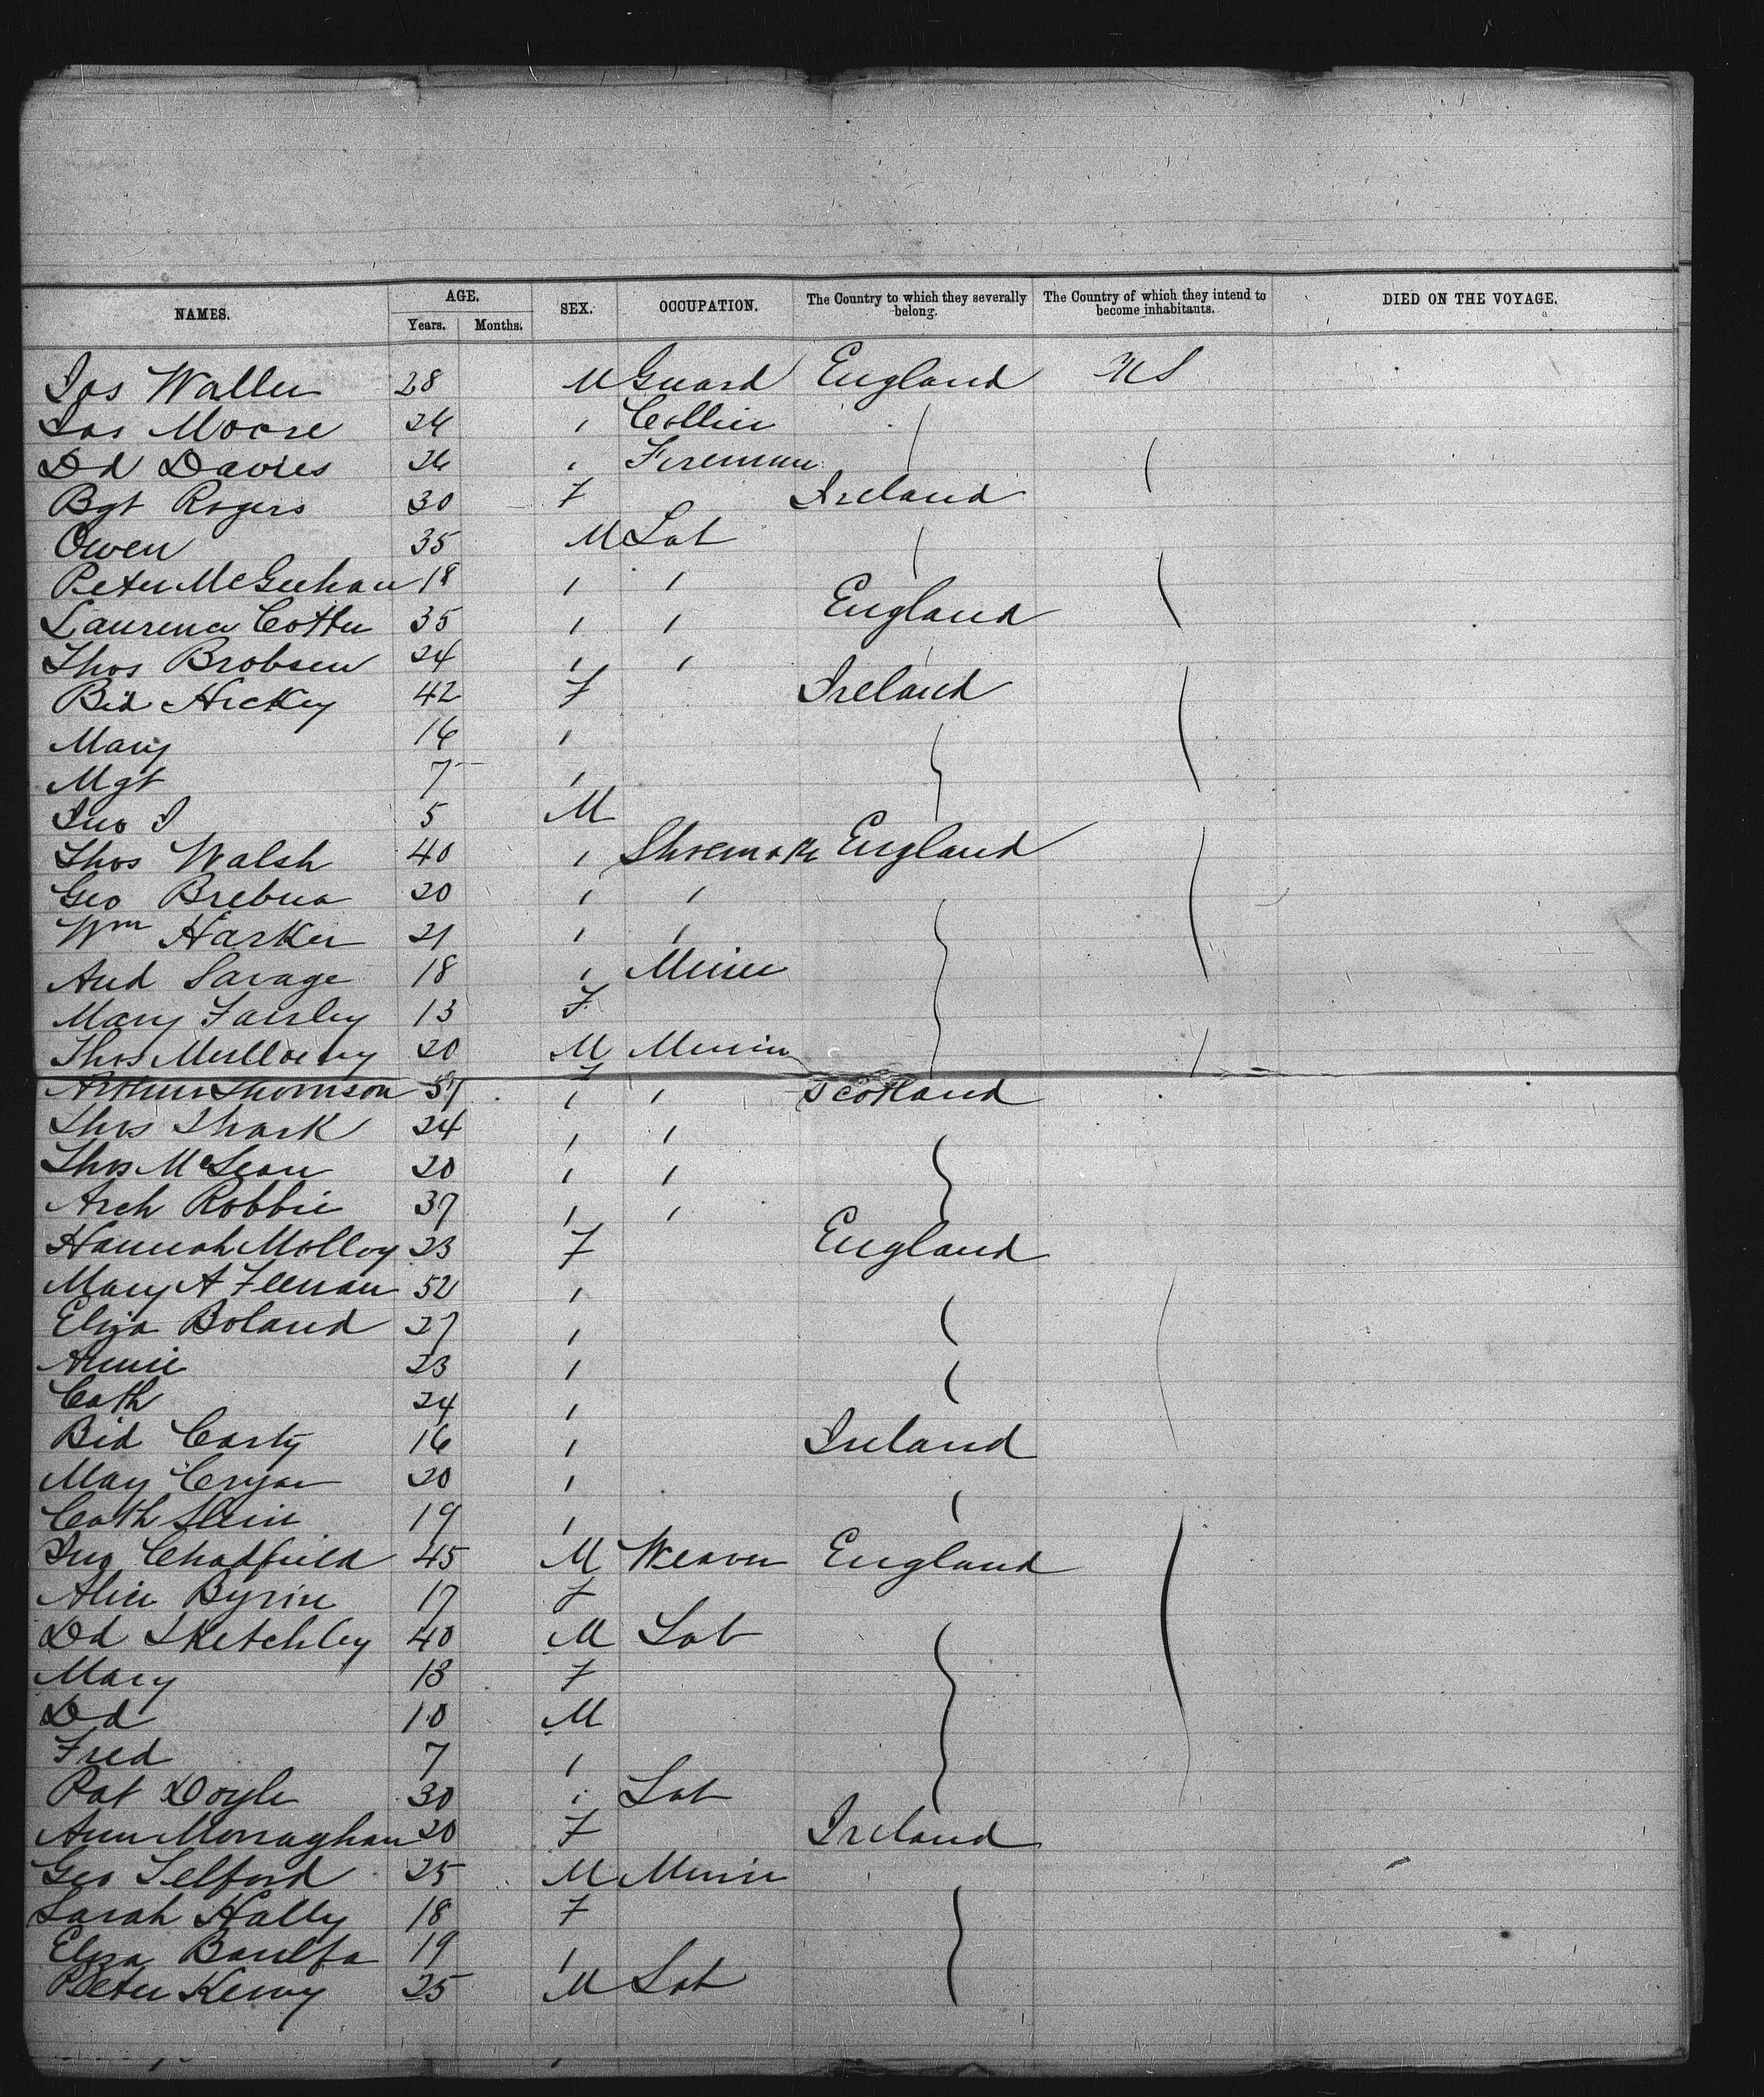 NAMES. AGE. Years. Months. SEX. OCCUPATION. The Country to which they severally belong. The Country of which they intend to become inhabitants. DIED ON THE VOYAGE.
Jos Waller 28 M Guard England US
Jas Moore 26 " Collier
Dd Davies 26 " Fireman
Bgt Rogers 30 F Ireland
Owen 35 M Lab
Peter McGeehan 18 " "
Laurence Cotter 35 " " England
Thos Brobsen 24 " "
Bid Hickey 42 F Ireland
Mary 16 "
Mgt 7 "
Jno J 5 M
Thos Walsh 40 " Shoemakr England
Geo Brebna 20 " "
Wm Harker 21 " "
And Savage 18 " Miner
Mary Fairley 13 F
Thos 20 M Miner
Arthur Thomson 37 " " Scotland
Thos Shark 24 " "
Thos McLean 20 " "
Arch Robbie 37 " "
Hannah Molloy 23 F England
Mary A 52 "
Eliza Boland 27 "
Annie 23 "
Cath 24 "
Bid Carty 16 " Ireland
May Cryan 20 "
Cath 19 "
Jno Chadfield 45 M Weaver England
Alice Byrne 17 F
Dd Sketchley 40 M Lab
Mary 13 F
Dd 10 M
Fred 7 "
Pat Doyle 30 " Lab
Ann Monaghan 20 F Ireland
Geo Telford 25 M Miner
Sarah Hally 18 F
Eliza 19 "
Peter 25 M Lab